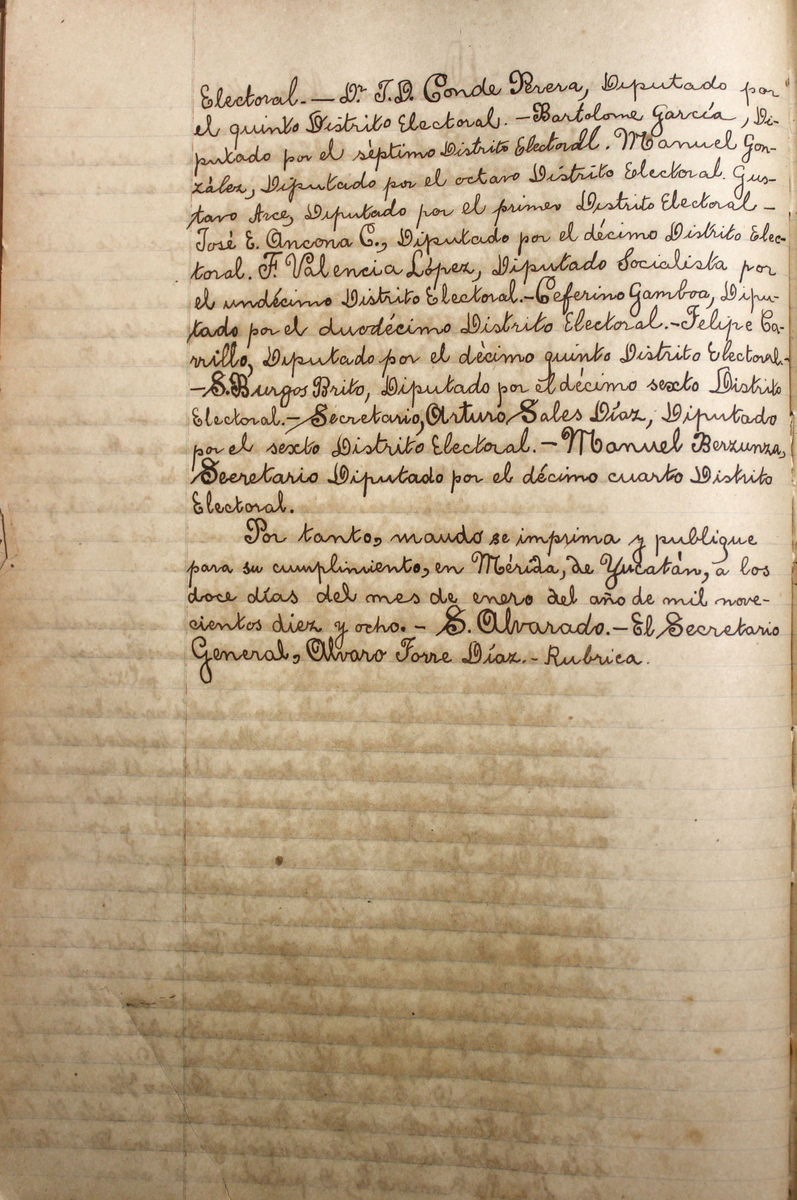 Electoral.—Dr. J. D. Conde Perera, Diputado por
el quinto Distrito Electoral.—Bartolome García, Di-
putado por el séptimo Distrito Electoral. Manuel Gon-
zález, Diputado por el octavo Distrito Electoral. Gus-
tavo Arce, Diputado por el primer Distrito Electoral—
José E. Ancona C., Diputado por el décimo Distrito Elec-
toral. F. Valencia López, Diputado Socialista por
el undécimo Distrito Electoral.—Ceferino Gamboa, Dipu-
tado por el duodécimo Distrito Electoral.—Felipe Ca-
rrillo, Diputado por el décimo quinto Distrito Electoral.—
—S. Burgos Brito, Diputado por el décimo sexto Distrito
Electoral.—Secretario, Arturo Sales Díaz, Diputado
por el sexto Distrito Electoral.—Manuel Berzunza,
Secretario Diputado por el décimo cuarto Distrito
Electoral.
Por tanto, mando se imprima y publique
para su cumplimiento, en Mérida, de Yucatán, a los
doce días del mes de enero del año de mil nove-
cientos diez y ocho.—S. Alvarado.—El Secretario
General, Alvaro Torre Díaz.—Rubrica.